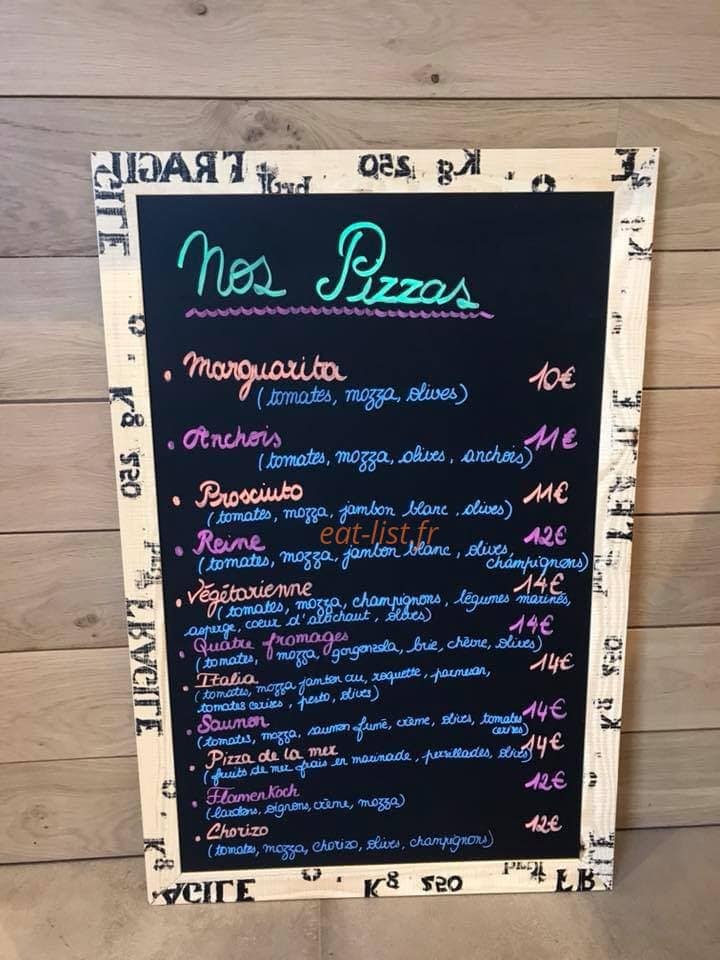 Nos Pizzas
• Marguarita 10€
(tomates, mozza, olives)
• Anchois 11€
(tomates, mozza, olives, anchois)
• Prosciuto 11€
(tomates, mozza, jambon blanc, olives)
eat-list.fr
• Reine 12€
(tomates, mozza, jambon blanc, olives, champignons)
• Végétarienne 14€
(tomates, mozza, champignons, légumes marinés,
asperge, coeur d'artichaut, olives)
• Quatre fromages 14€
(tomates, mozza, gorgonzola, brie, chèvre, olives)
• Italia 14€
(tomates, mozza, jambon cru, roquette, parmesan,
tomates cerises, pesto, olives)
• Saumon 14€
(tomates, mozza, saumon fumé, crème, olives, tomates
cerises)
• Pizza de la mer 14€
(fruits de mer frais en marinade, persillades, olives)
• FlamenKoch 12€
(lardons, oignons, crème, mozza)
• Chorizo 12€
(tomates, mozza, chorizo, olives, champignons)
FRAGILE
Kg 250